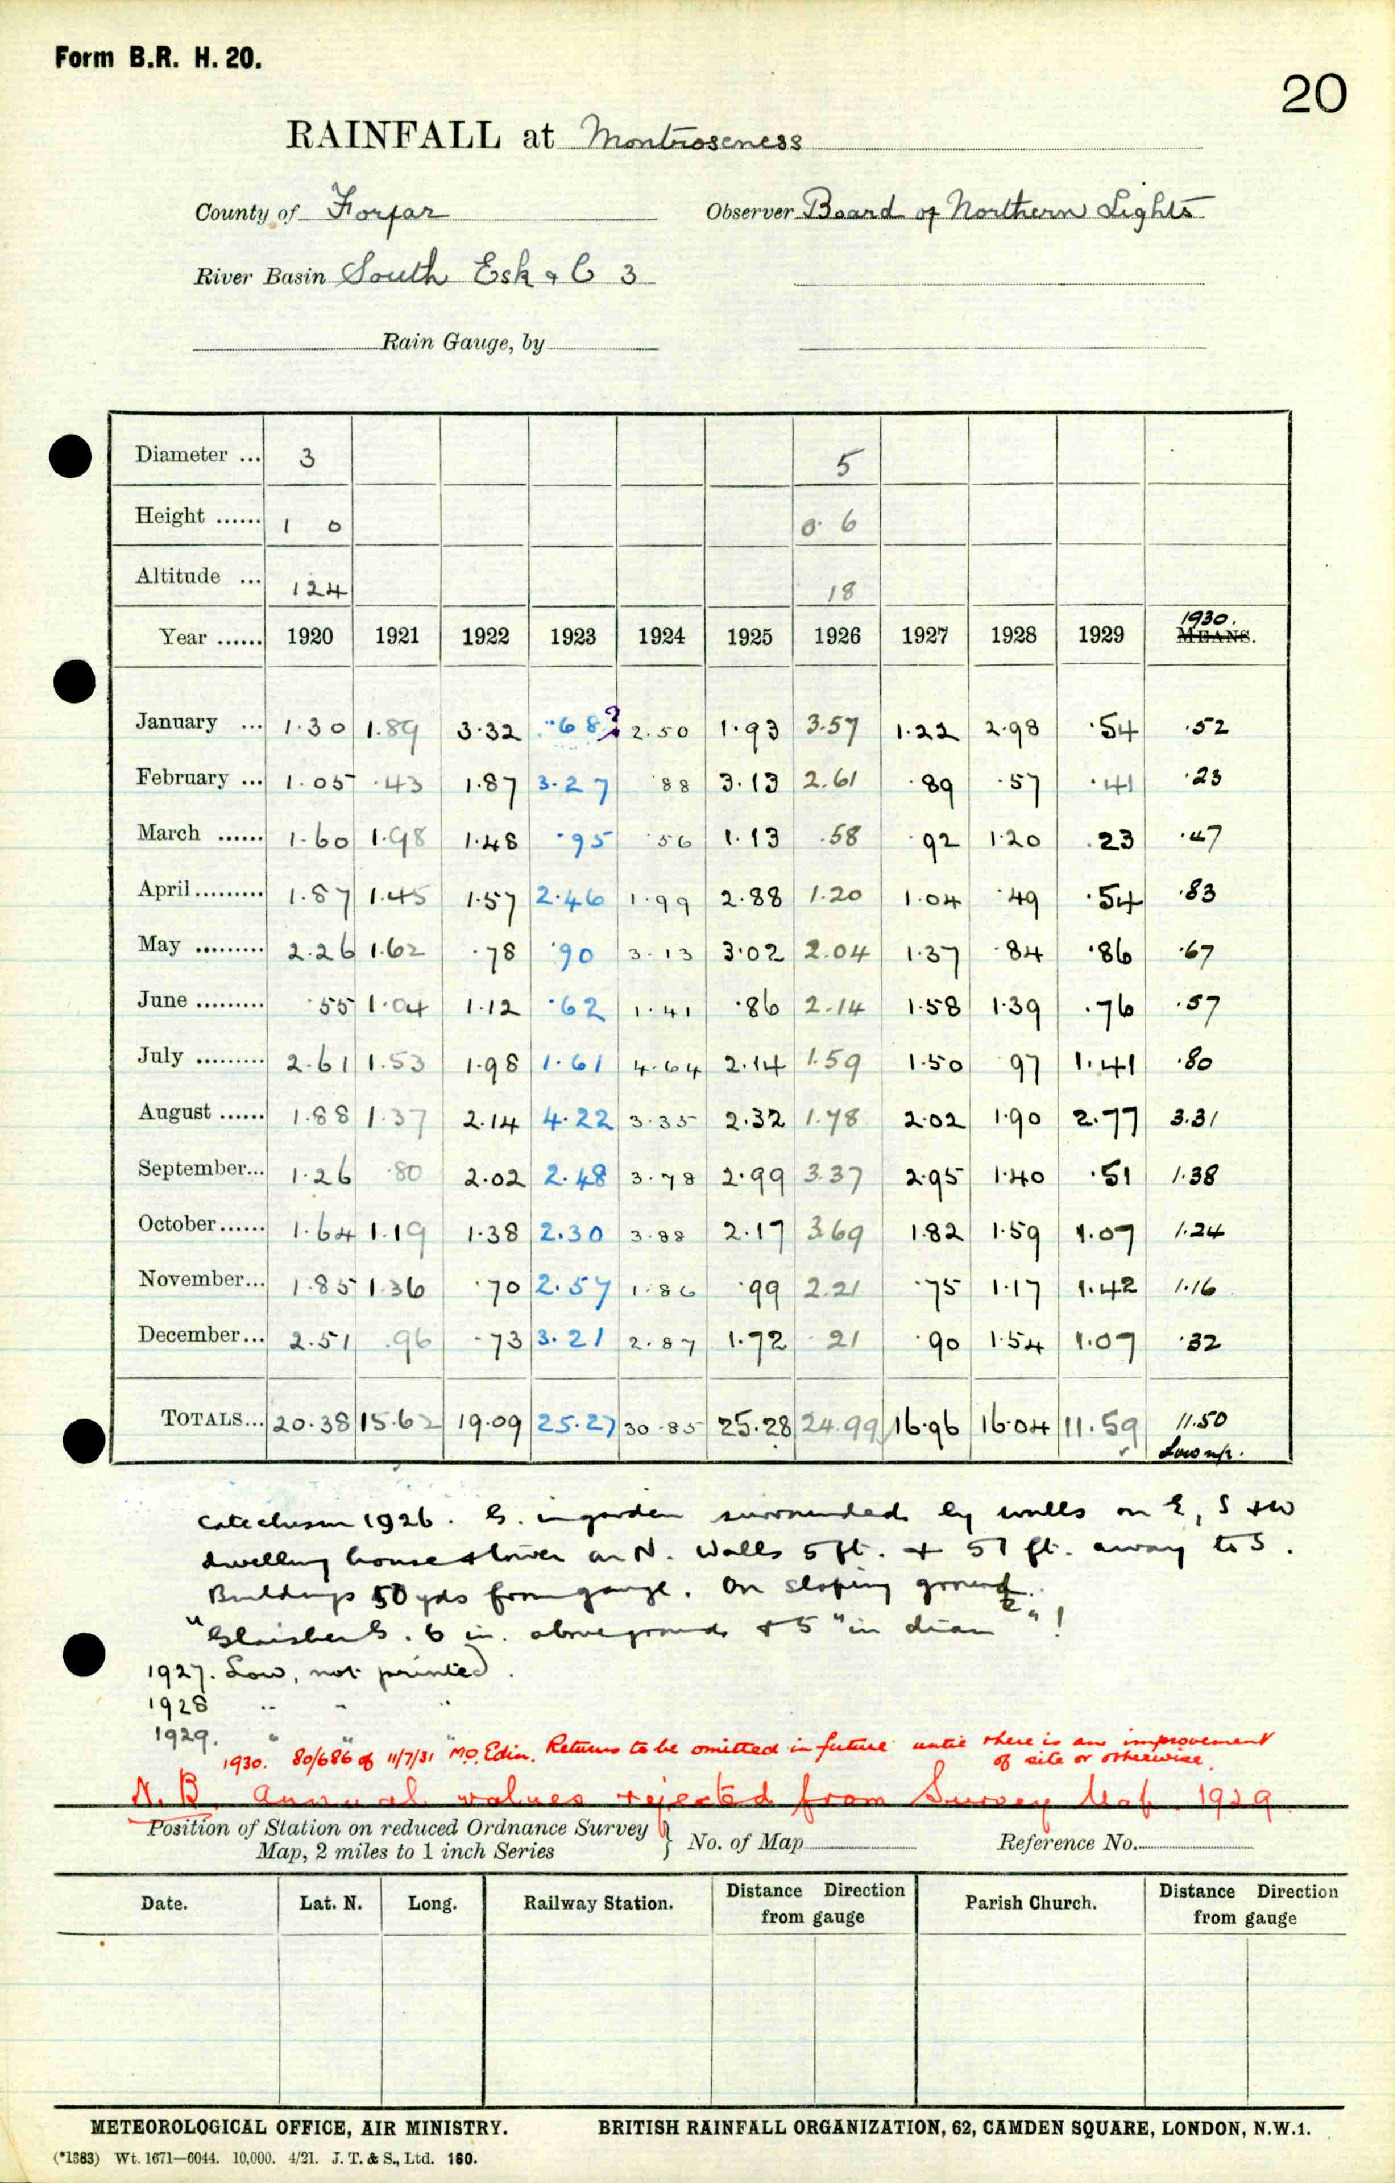 Form B.R. H. 20.
20
RAINFALL at Montroseness
County of Forfar Observer Board of Northern Lights
River Basin South Esk & C 3
Rain Gauge, by
Diameter ... 3 5
Height ...... 1 0 0. 6
Altitude ... 124 18
1930.
Year ...... 1920 1921 1922 1923 1924 1925 1926 1927 1928 1929 MEANS.
January ... 1.30 1.89 3.32 .68? 2.50 1.93 3.57 1.22 2.98 .54 .52
February ... 1.05 .43 1.87 3.27 .88 3.13 2.61 .89 .57 .41 .23
March ...... 1.60 1.98 1.48 .95 .56 1.13 .58 .92 1.20 .23 .47
April......... 1.87 1.45 1.57 2.46 1.99 2.88 1.20 1.04 .49 .54 .83
May ......... 2.26 1.62 .78 .90 3.13 3.02 2.04 1.37 .84 .86 .67
June ......... .55 1.04 1.12 .62 1.41 .86 2.14 1.58 1.39 .76 .57
July ......... 2.61 1.53 1.98 1.61 4.64 2.14 1.59 1.50 .97 1.41 .80
August ...... 1.88 1.37 2.14 4.22 3.35 2.32 1.78 2.02 1.90 2.77 3.31
September... 1.26 .80 2.02 2.48 3.78 2.99 3.37 2.95 1.40 .51 1.38
October...... 1.64 1.19 1.38 2.30 3.88 2.17 3.69 1.82 1.59 1.07 1.24
November... 1.85 1.36 .70 2.57 1.86 .99 2.21 .75 1.17 1.42 1.16
December... 2.51 .96 .73 3.21 2.87 1.72 .21 .90 1.54 1.07 .32
TOTALS... 20.38 15.62 19.09 25.27 30.85 25.28 24.99 16.96 16.04 11.59 11.50
Low n/p.
Catechism 1926. G. in garden surrounded by walls on E, S & W
dwelling house & tower on N. Walls 5 ft. & 57 ft. away to S.
Buildings 50 yds from gauge. On sloping ground.
"Glaisher G. 6 in. above ground & 5" in diam"!
1927. Low, not printed.
1928 " " "
1929. " " "
1930. 80/686 of 11/7/31 M.O. Edin. Returns to be omitted in future until there is an improvement
of site or otherwise.
N.B. Annual values rejected from Survey Map. 1929.
Position of Station on reduced Ordnance Survey } No. of Map Reference No.
Map, 2 miles to 1 inch Series
Date. Lat. N. Long. Railway Station. Distance Direction from gauge Parish Church. Distance Direction from gauge
METEOROLOGICAL OFFICE, AIR MINISTRY. BRITISH RAINFALL ORGANIZATION, 62, CAMDEN SQUARE, LONDON, N.W.1.
(*1383) Wt. 1671—6044. 10,000. 4/21. J. T. & S., Ltd. 160.